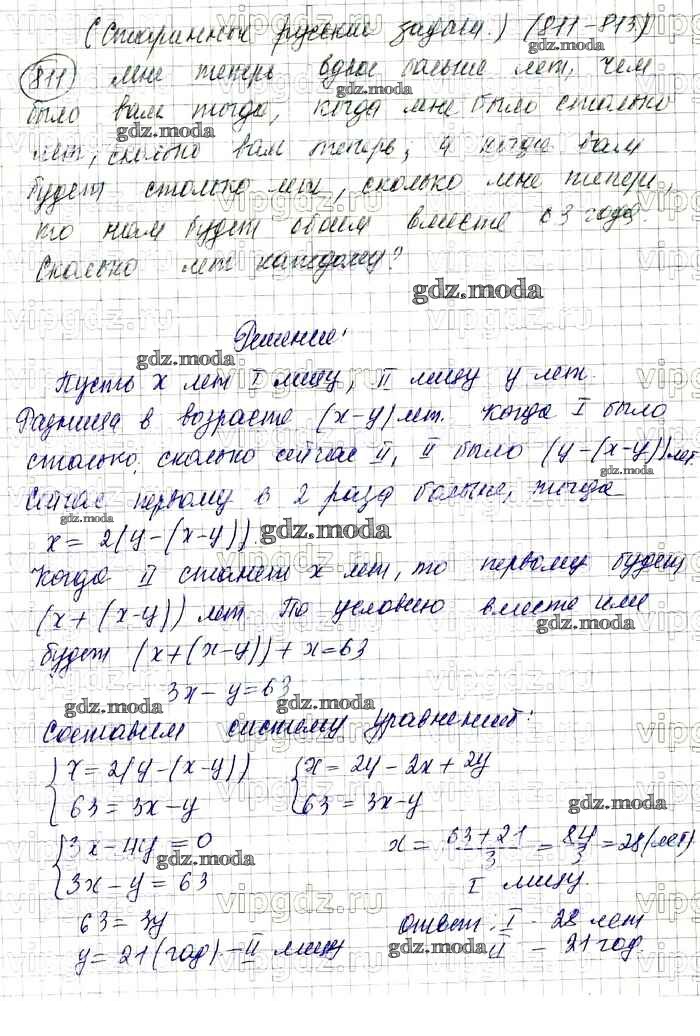 (Старинные русские задачи.) (811-813)
811) мне теперь вдвое больше лет, чем
было вам тогда, когда мне было столько
лет, сколько вам теперь, а когда вам
будет столько лет, сколько мне теперь,
то нам будет обоим вместе 63 года.
Сколько лет каждому?
gdz.moda
Решение:
Пусть x лет I лицу, II лицу y лет.
Разница в возрасте (x-y) лет. Когда I было
столько, сколько сейчас II, II было (y-(x-y)) лет
Сейчас первому в 2 раза больше, тогда
x = 2(y-(x-y)).
Когда II станет x лет, то первому будет
(x+(x-y)) лет. По условию вместе или
будет (x+(x-y))+x=63
3x-y=63
Составим систему уравнений:
{x=2(y-(x-y)) {x=2y-2x+2y
{63=3x-y {63=3x-y
{3x-4y=0 x = 63+21/3 = 84/3 = 28 (лет)
{3x-y=63 I лицу.
63=3y Ответ: I - 28 лет
y=21(год) - II лицу II - 21 год.
vipgdz.ru